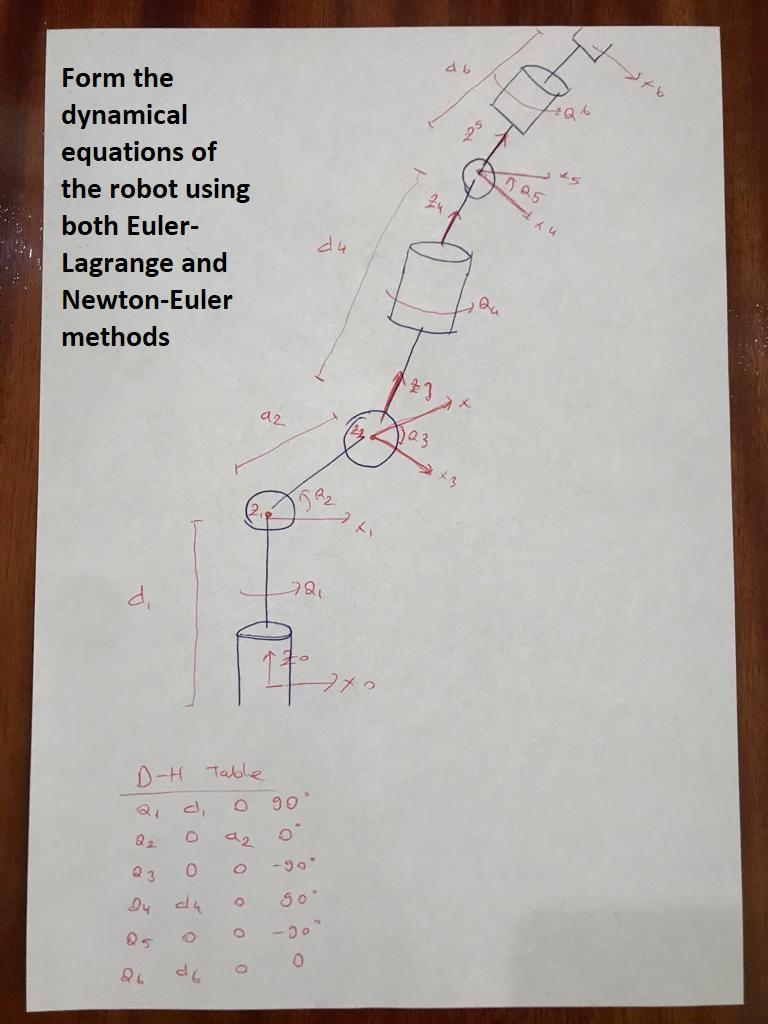 Form the
dynamical
equations of
the robot using
both Euler-
Lagrange and
Newton-Euler
methods
d6
x6
Q6
z5
x5
Q5
x4
z4
d4
Q4
z3
x
a2
z2
Q3
x3
Q2
z1
x1
d1
Q1
z0
x0
D-H Table
Q1 d1 0 90°
Q2 0 a2 0°
Q3 0 0 -90°
Q4 d4 0 90°
Q5 0 0 -90°
Q6 d6 0 0